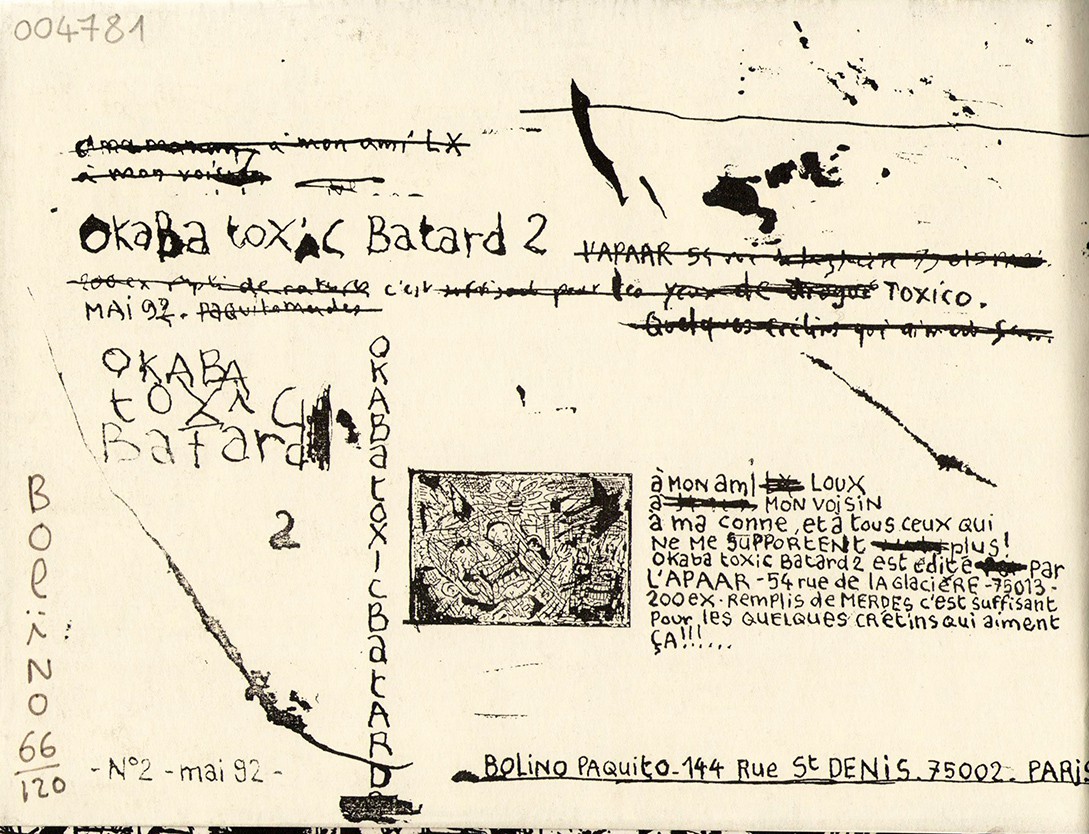 004781
à ma maman, à mon ami LX
à mon voisin
OkaBa toxic Batard 2
L'APAAR 54 rue
200 ex rempli de c'est suffisant pour les yeux de drogué TOXICO.
MAI 92. paquitomerdes
Quelques crétins qui aiment ça...
OKABA
toxic
Batard
2
OKABatoxicBatARD
BOliNO
66/120
- N°2 - mai 92 -
à MON ami LX LOUX
à MON VOISIN
à ma conne, et à tous ceux qui
NE ME SUPPORTENt plus!
Okaba toxic Batard 2 est édité Par
L'APAAR - 54 rue de lA GlaciÈRE - 75013 -
200 ex. Remplis de MERDES c'est suffisant
Pour les QUELQUES CRétins qui aiment
ÇA!!!.....
BOLINO PAQUITO - 144 Rue St DENIS. 75002. PARiS